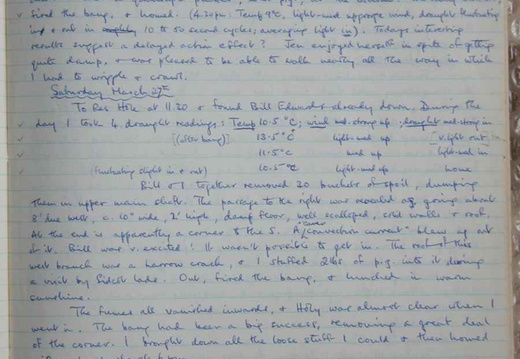 fired the bang, & homed. (4.30pm: Temp 9°C, light-med upslope wind, draught fluctuating
in & out in 10 to 50 second cycles; averaging light in). Todays interesting
results suggest a delayed action effect? Jen enjoyed herself in spite of getting
quite damp, & was pleased to be able to walk nearly all the way in which
I had to wriggle & crawl.
Saturday March 27th
To Fos Hole at 11.20 & found Bill Edwards already down. During the
day I took 4 draught readings: Temp 10.5°C; wind med. strong up; draught med. strong in
(after bang) 13.5°C light-med up v. light out
11.5°C med up light-med in
(fluctuating slight in & out) 10.5°C light-med up none
Bill & I together removed 20 buckets of spoil, dumping
them in upper main shaft. The passage to the right was revealed as going about
8' due west, 0.10" wide, 2' high, floor, well scalloped, solid walls & roof.
At the end is apparently a corner to the S. A "convection current" blew up out
of it. Bill was v. excited! It wasn't possible to get in. The roof of this
west branch was a narrow crack, & I stuffed 2lbs of pig. into it during
a visit by Sidcot lads. Out, fired the bang, & lunched in warm
sunshine.
The fumes all vanished inwards, & Holy was almost clear when I
went in. The bang had been a big success, removing a great deal
of the corner. I brought down all the loose stuff I could & then homed